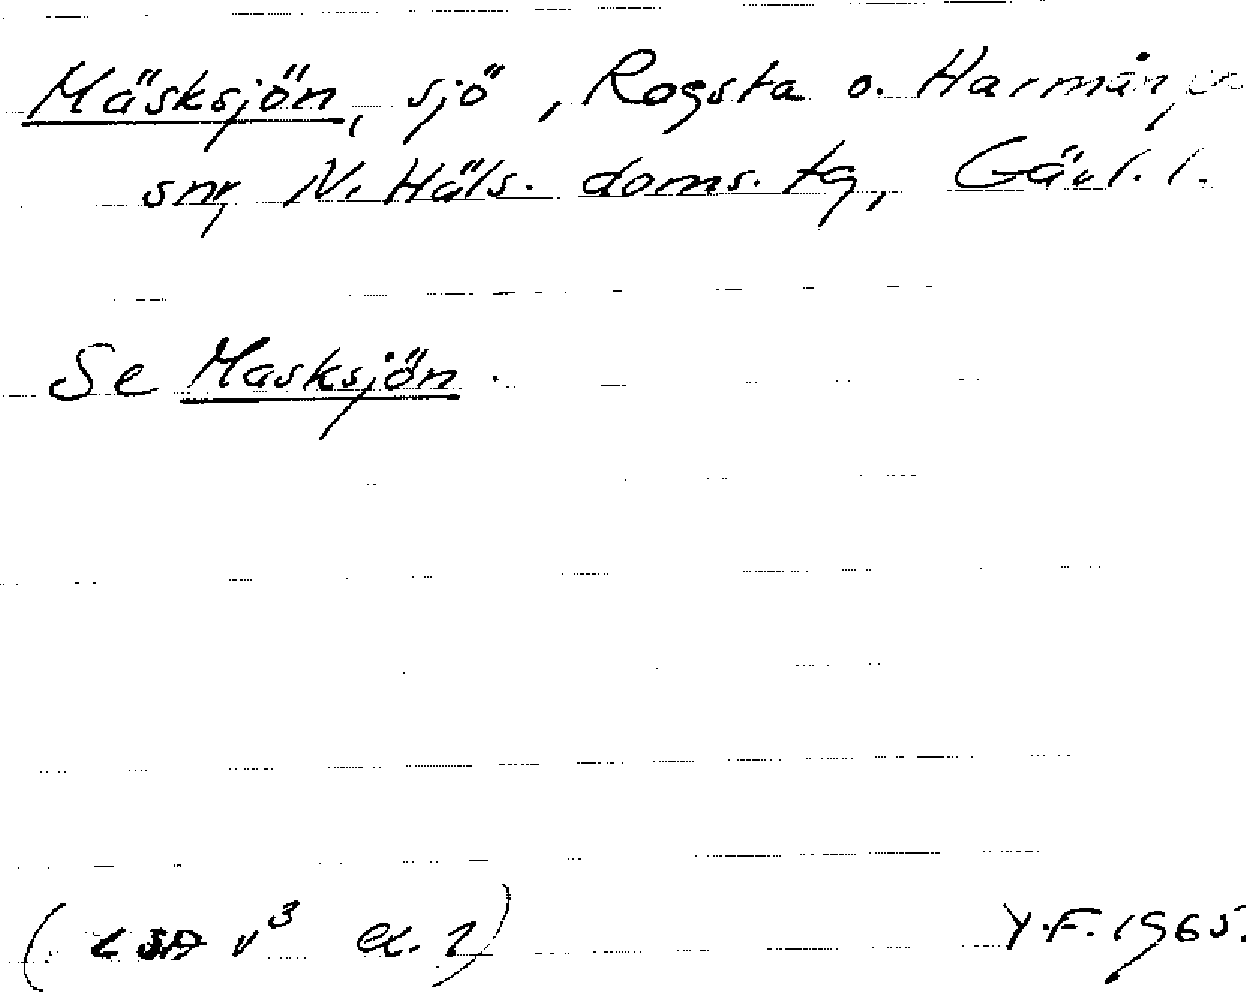 Mäsksjön, sjö, Rogsta o. Harmånger
snr, N. Häls. doms. tg, Gävl. l.
Se Masksjön.
(LSA v³ ex. 2)
Y.F. 1965.